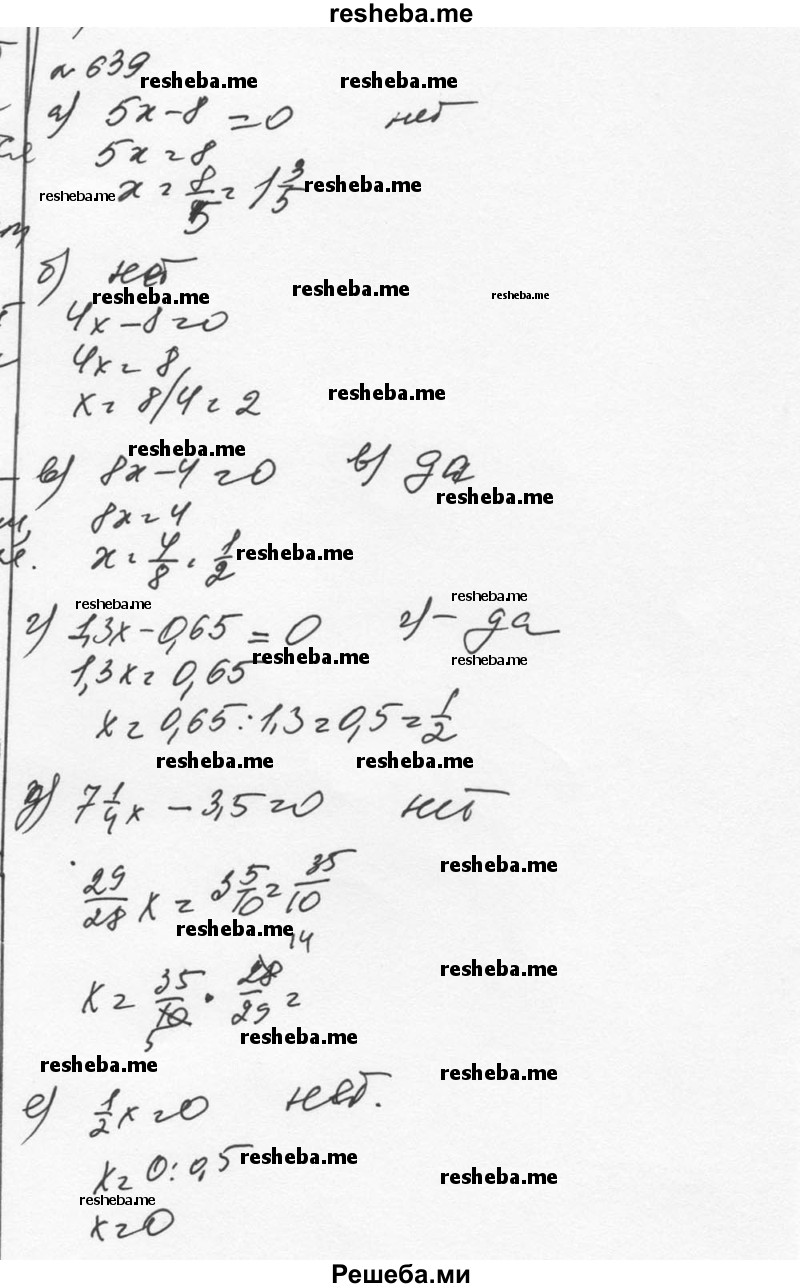 resheba.me
№ 639
resheba.me resheba.me
а) 5x-8 =0 нет
5x=8
resheba.me x = 8/5 = 1 3/5 resheba.me
б) нет
resheba.me resheba.me resheba.me
4x-8=0
4x=8
x= 8/4 = 2 resheba.me
resheba.me
в) 8x-4=0 в) да
resheba.me
8x=4
x = 4/8 = 1/2 resheba.me
resheba.me resheba.me
г) 1,3x-0,65 = 0 г) - да
resheba.me resheba.me
1,3x= 0,65
x= 0,65:1,3=0,5=1/2
resheba.me resheba.me
д) 7 1/4 x - 3,5=0 нет
resheba.me
29/28 x = 3 5/10 = 35/10
resheba.me
14
resheba.me
x= 35/10 · 28/29 =
5
resheba.me
resheba.me resheba.me
е) 1/2 x=0 нет.
x= 0:0,5 resheba.me
resheba.me resheba.me
x=0
Решеба.ми